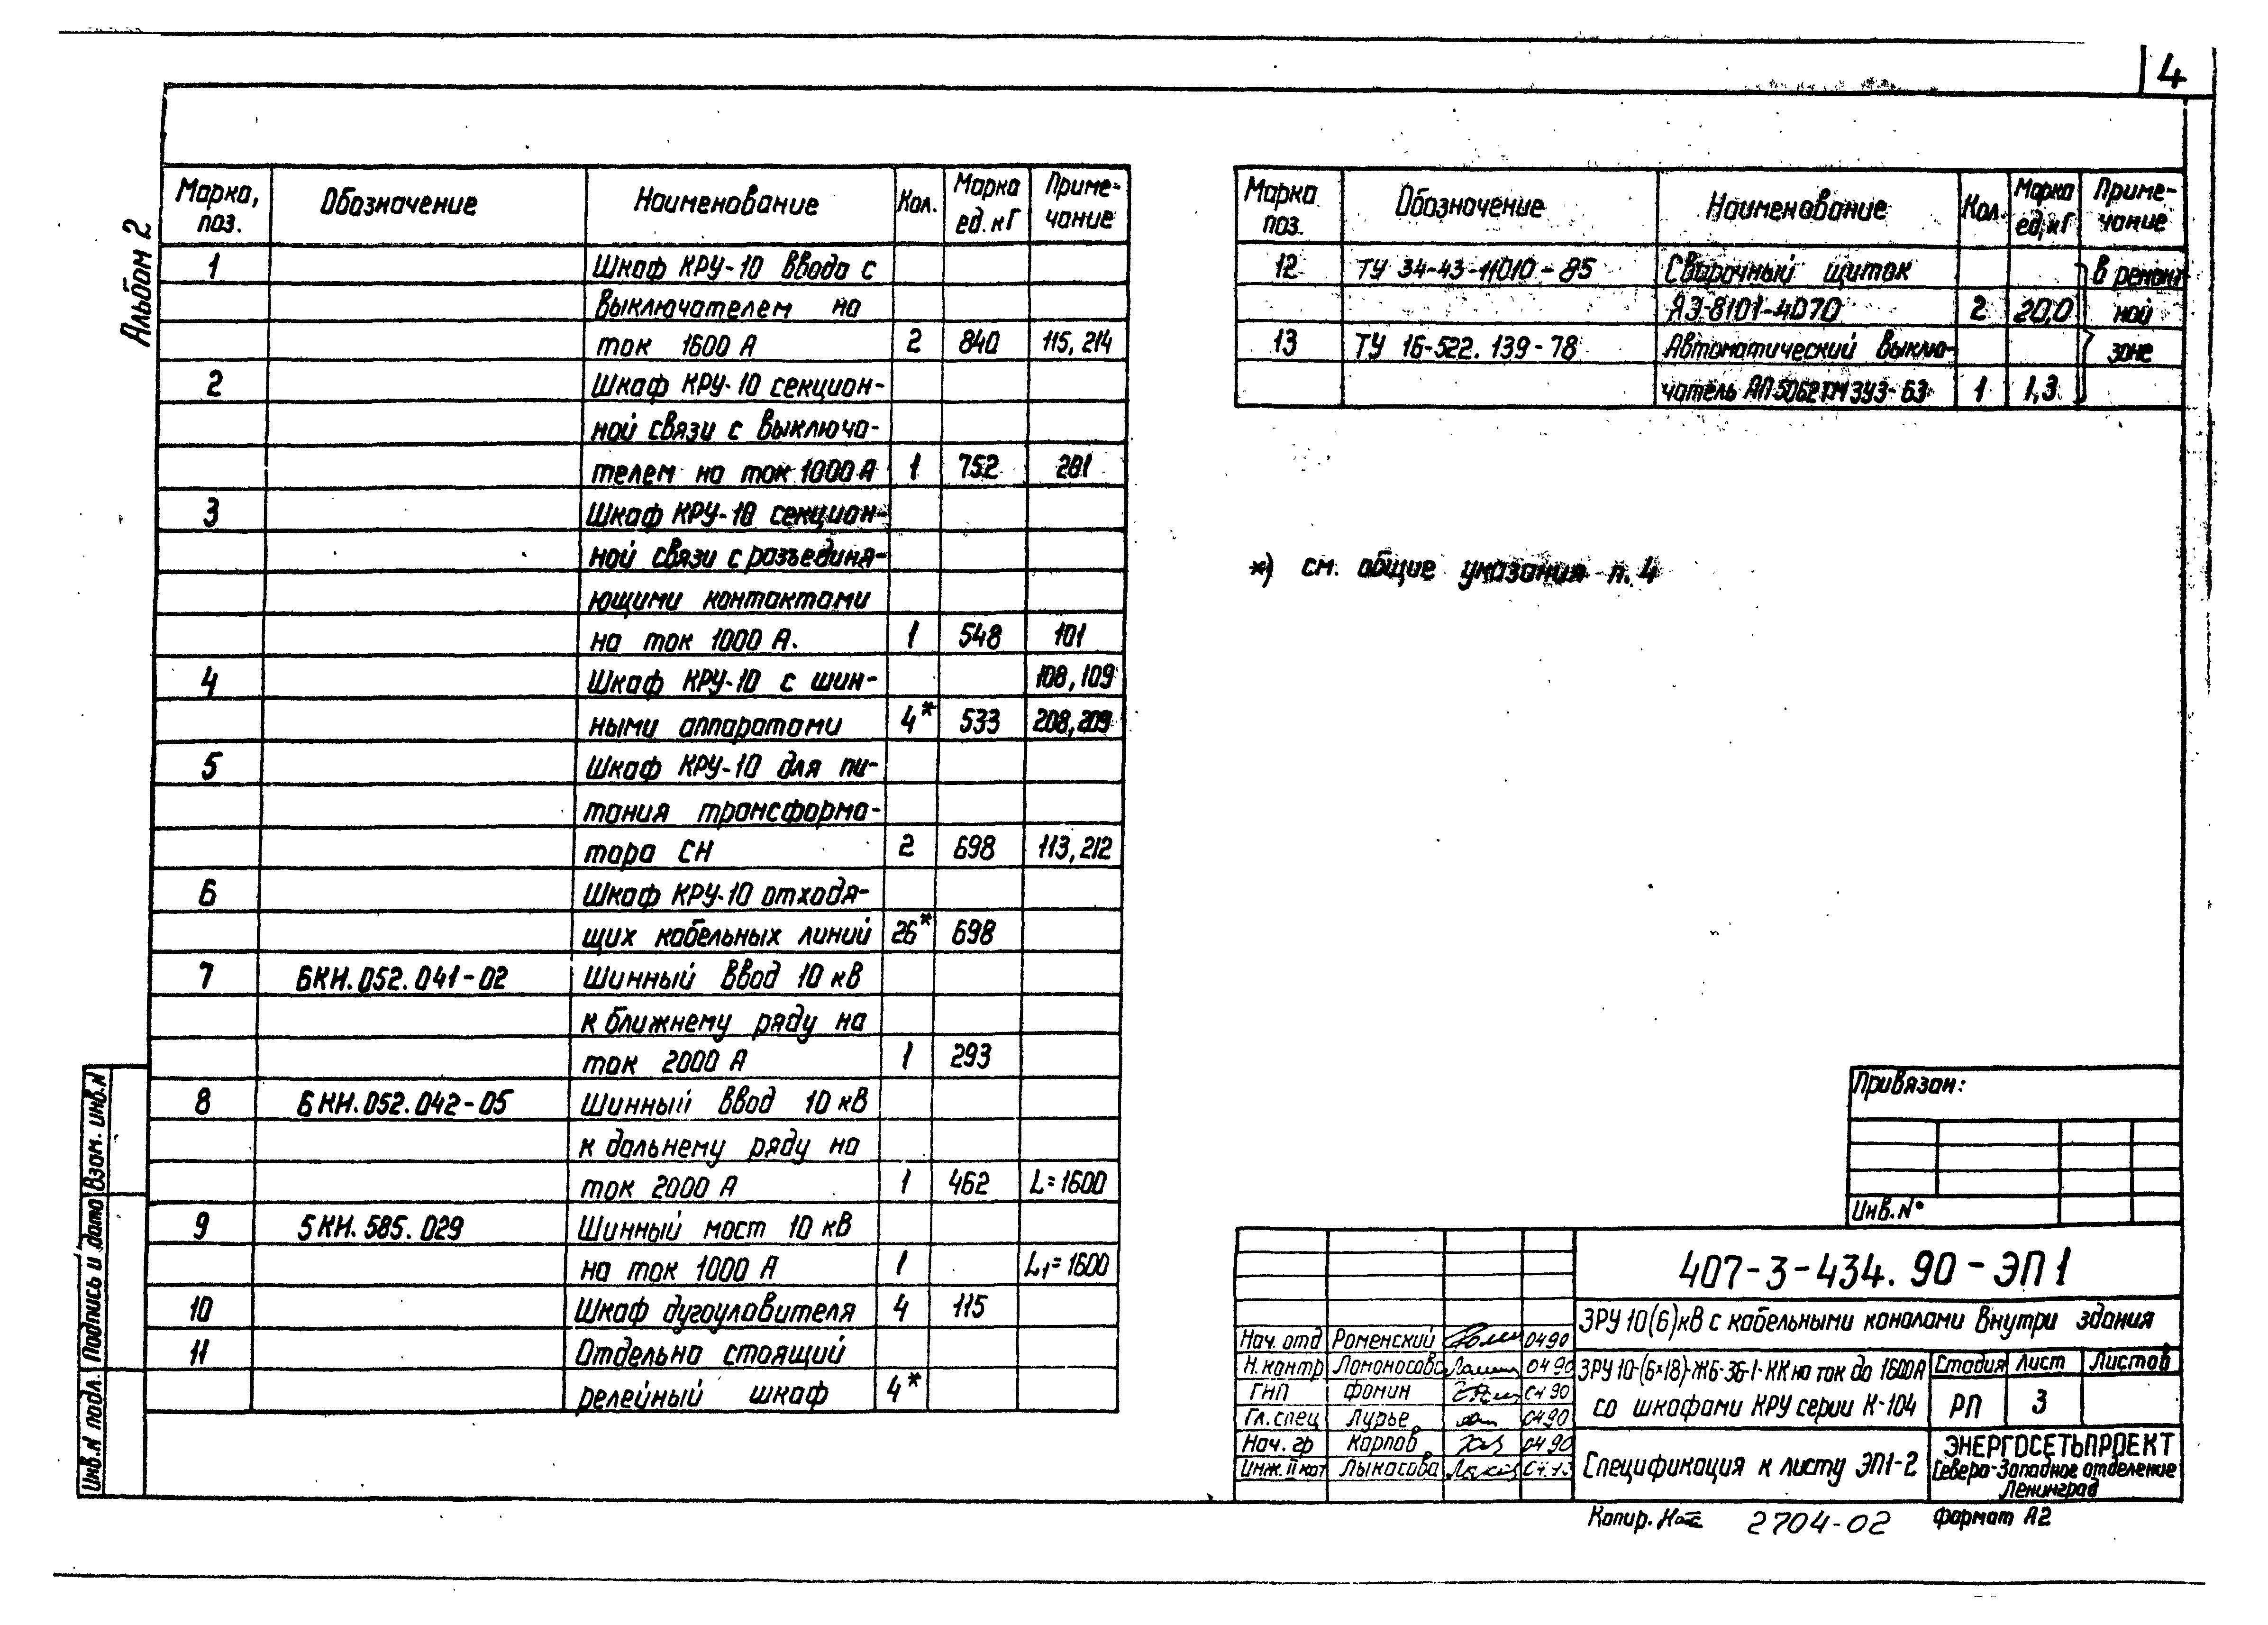 4
Альбом 2
Марка, поз. Обозначение Наименование Кол. Марка ед. кГ Приме-чание
1 Шкаф КРУ-10 ввода с
выключателем на
ток 1600 А 2 840 115, 214
2 Шкаф КРУ-10 секцион-
ной связи с выключа-
телем на ток 1000 А 1 752 201
3 Шкаф КРУ-10 секцион-
ной связи с разъединя-
ющими контактами
на ток 1000 А. 1 548 101
4 Шкаф КРУ-10 с шин- 108, 109
ными аппаратами 4* 533 208, 209
5 Шкаф КРУ-10 для пи-
тания трансформа-
тора СН 2 698 113, 212
6 Шкаф КРУ-10 отходя-
щих кабельных линий 26* 698
7 БКН.052.041-02 Шинный ввод 10 кВ
к ближнему ряду на
ток 2000 А 1 293
8 БКН.052.042-05 Шинный ввод 10 кВ
к дальнему ряду на
ток 2000 А 1 462 L=1600
9 5КН.585.029 Шинный мост 10 кВ
на ток 1000 А 1 L1=1600
10 Шкаф дугоуловителя 4 115
11 Отдельно стоящий
релейный шкаф 4*
Марка поз. Обозначение Наименование Кол. Марка ед, кГ Приме-чание
12 ТУ 34-43-11010-85 Сварочный щиток в ремонт
ЯЭ-8101-4070 2 20,0 ной
13 ТУ 16-522.139-78 Автоматический выклю- зоне
чатель 1 1,3
*) см. общие указания п. 4
Привязан:
Инв. N°
407-3-434.90-ЭП1
ЗРУ 10(6)кВ с кабельными каналами внутри здания
ЗРУ 10-(6×18)-ЖБ-36-1-КК на ток до 1600А
со шкафами КРУ серии К-104
Стадия Лист Листов
РП 3
Спецификация к листу ЭП1-2
ЭНЕРГОСЕТЬПРОЕКТ
Северо-Западное отделение
Ленинград
Нач. отд Роменский 0490
Н. контр Ломоносова 0490
ГИП Фомин 0490
Гл. спец Лурье 0490
Нач. гр Карпов 0490
Инж. II кат Лыкасова
Инв. N подл. Подпись и дата Взам. инв. N
Копир. 2704-02 Формат А2